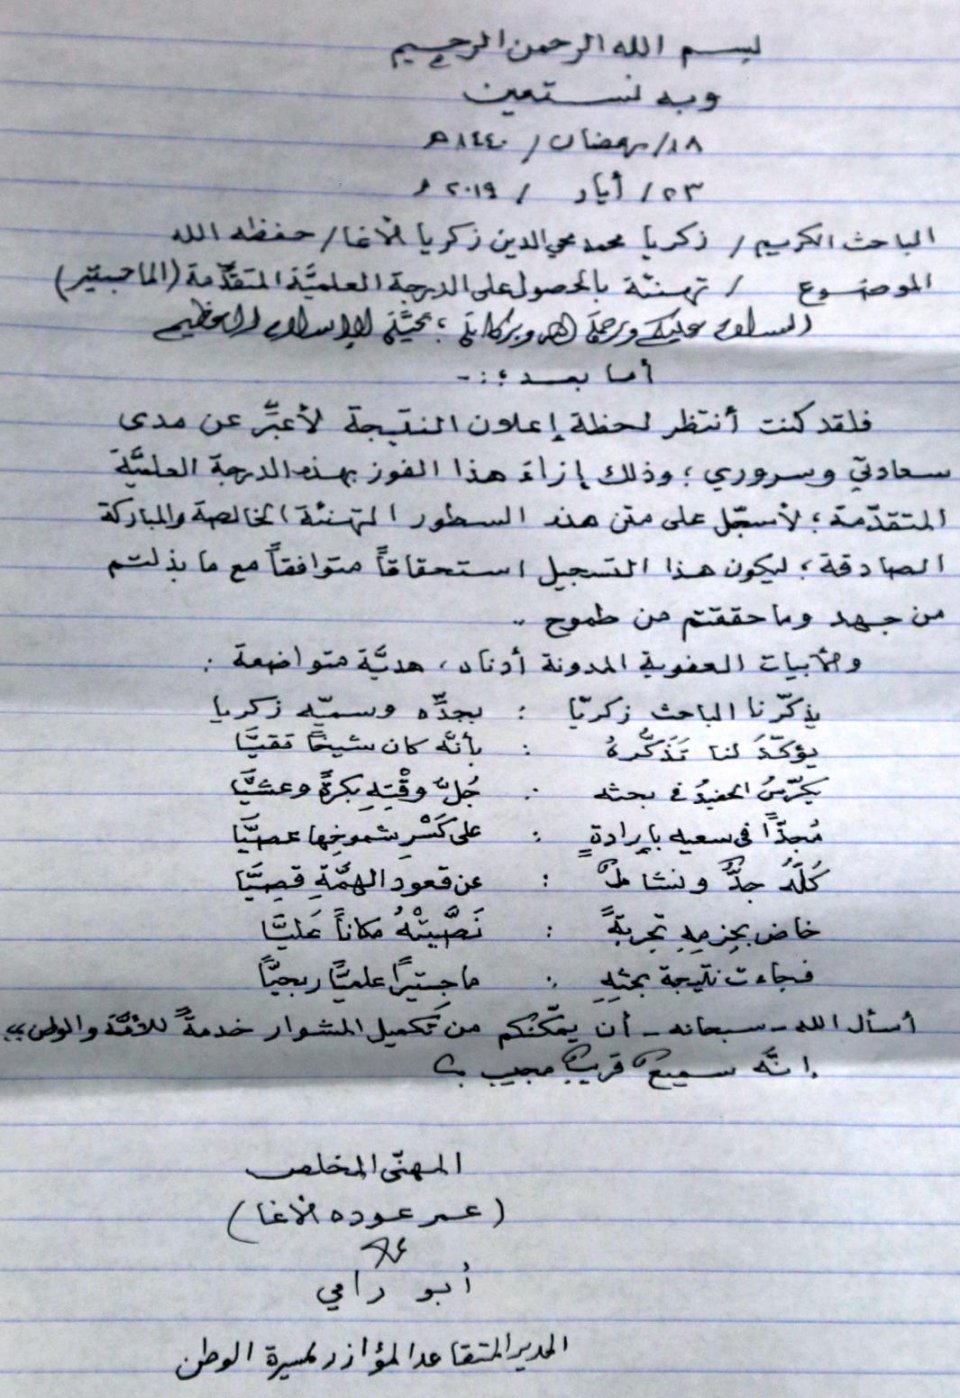 بسم الله الرحمن الرحيم
وبه نستعين
١٨/ رمضان / ١٤٤٠ هـ
٢٣ / أيار / ٢٠١٩ م
الباحث الكريم / زكريا محمد محي الدين زكريا الأغا / حفظه الله
الموضوع / تهنئة بالحصول على الدرجة العلميَّة المتقدِّمة (الماجستير)
السلام عليكم ورحمة الله وبركاته ؛ تحيَّة الإسلام العظيم
أما بعد ؛ : -
فلقد كنت أنتظر لحظة إعلان النتيجة لأعبِّر عن مدى
سعادتي وسروري ؛ وذلك إزاءَ هذا الفوز بهذه الدرجة العلميَّة
المتقدّمة ؛ لأسجّل على متن هذه السطور التهنئة الخالصة والمباركة
الصادقة ؛ ليكون هذا التسجيل استحقاقاً متوافقاً مع ما بذلتم
من جهد وما حققتم من طموح ..
والأبيات العفوية المدونة أدناه ، هديَّة متواضعة :
يذكّرنا الباحث زكريّا : بجدِّه وسميّه زكريا
يؤكّدَ لنا تَذَكُّرهُ : بأنَّه كان شيخًا تقيَّا
يكرّسُ الحفيدُ في بحثه : جُلَّ وقْتِهِ بكرةً وعشيَّا
مُجدّاً في سعيه بإرادةٍ : على كَسْرِ شموخِها عصيَّا
كُلّهُ جدٌّ ونشاطٌ : عن قعود الهمَّةِ قصِيَّا
خاض بحزمِهِ تجربةً : نَصَّبَتْهُ مكاناً عَليَّا
فجاءت نتيجة بحثِهِ : ماجستيراً علميَّاً ربحيَّاً
أسأل الله - سبحانه - أن يمكّنكم من تكميل المشوار خدمةً للأمَّة والوطن ؛؛
إنَّه سميعٌ قريبٌ مجيب ؛؛
المهنّئ المخلص
(عمر عوده الأغا)
أبو رامي
المدير المتقاعد المؤازر لمسيرة الوطن